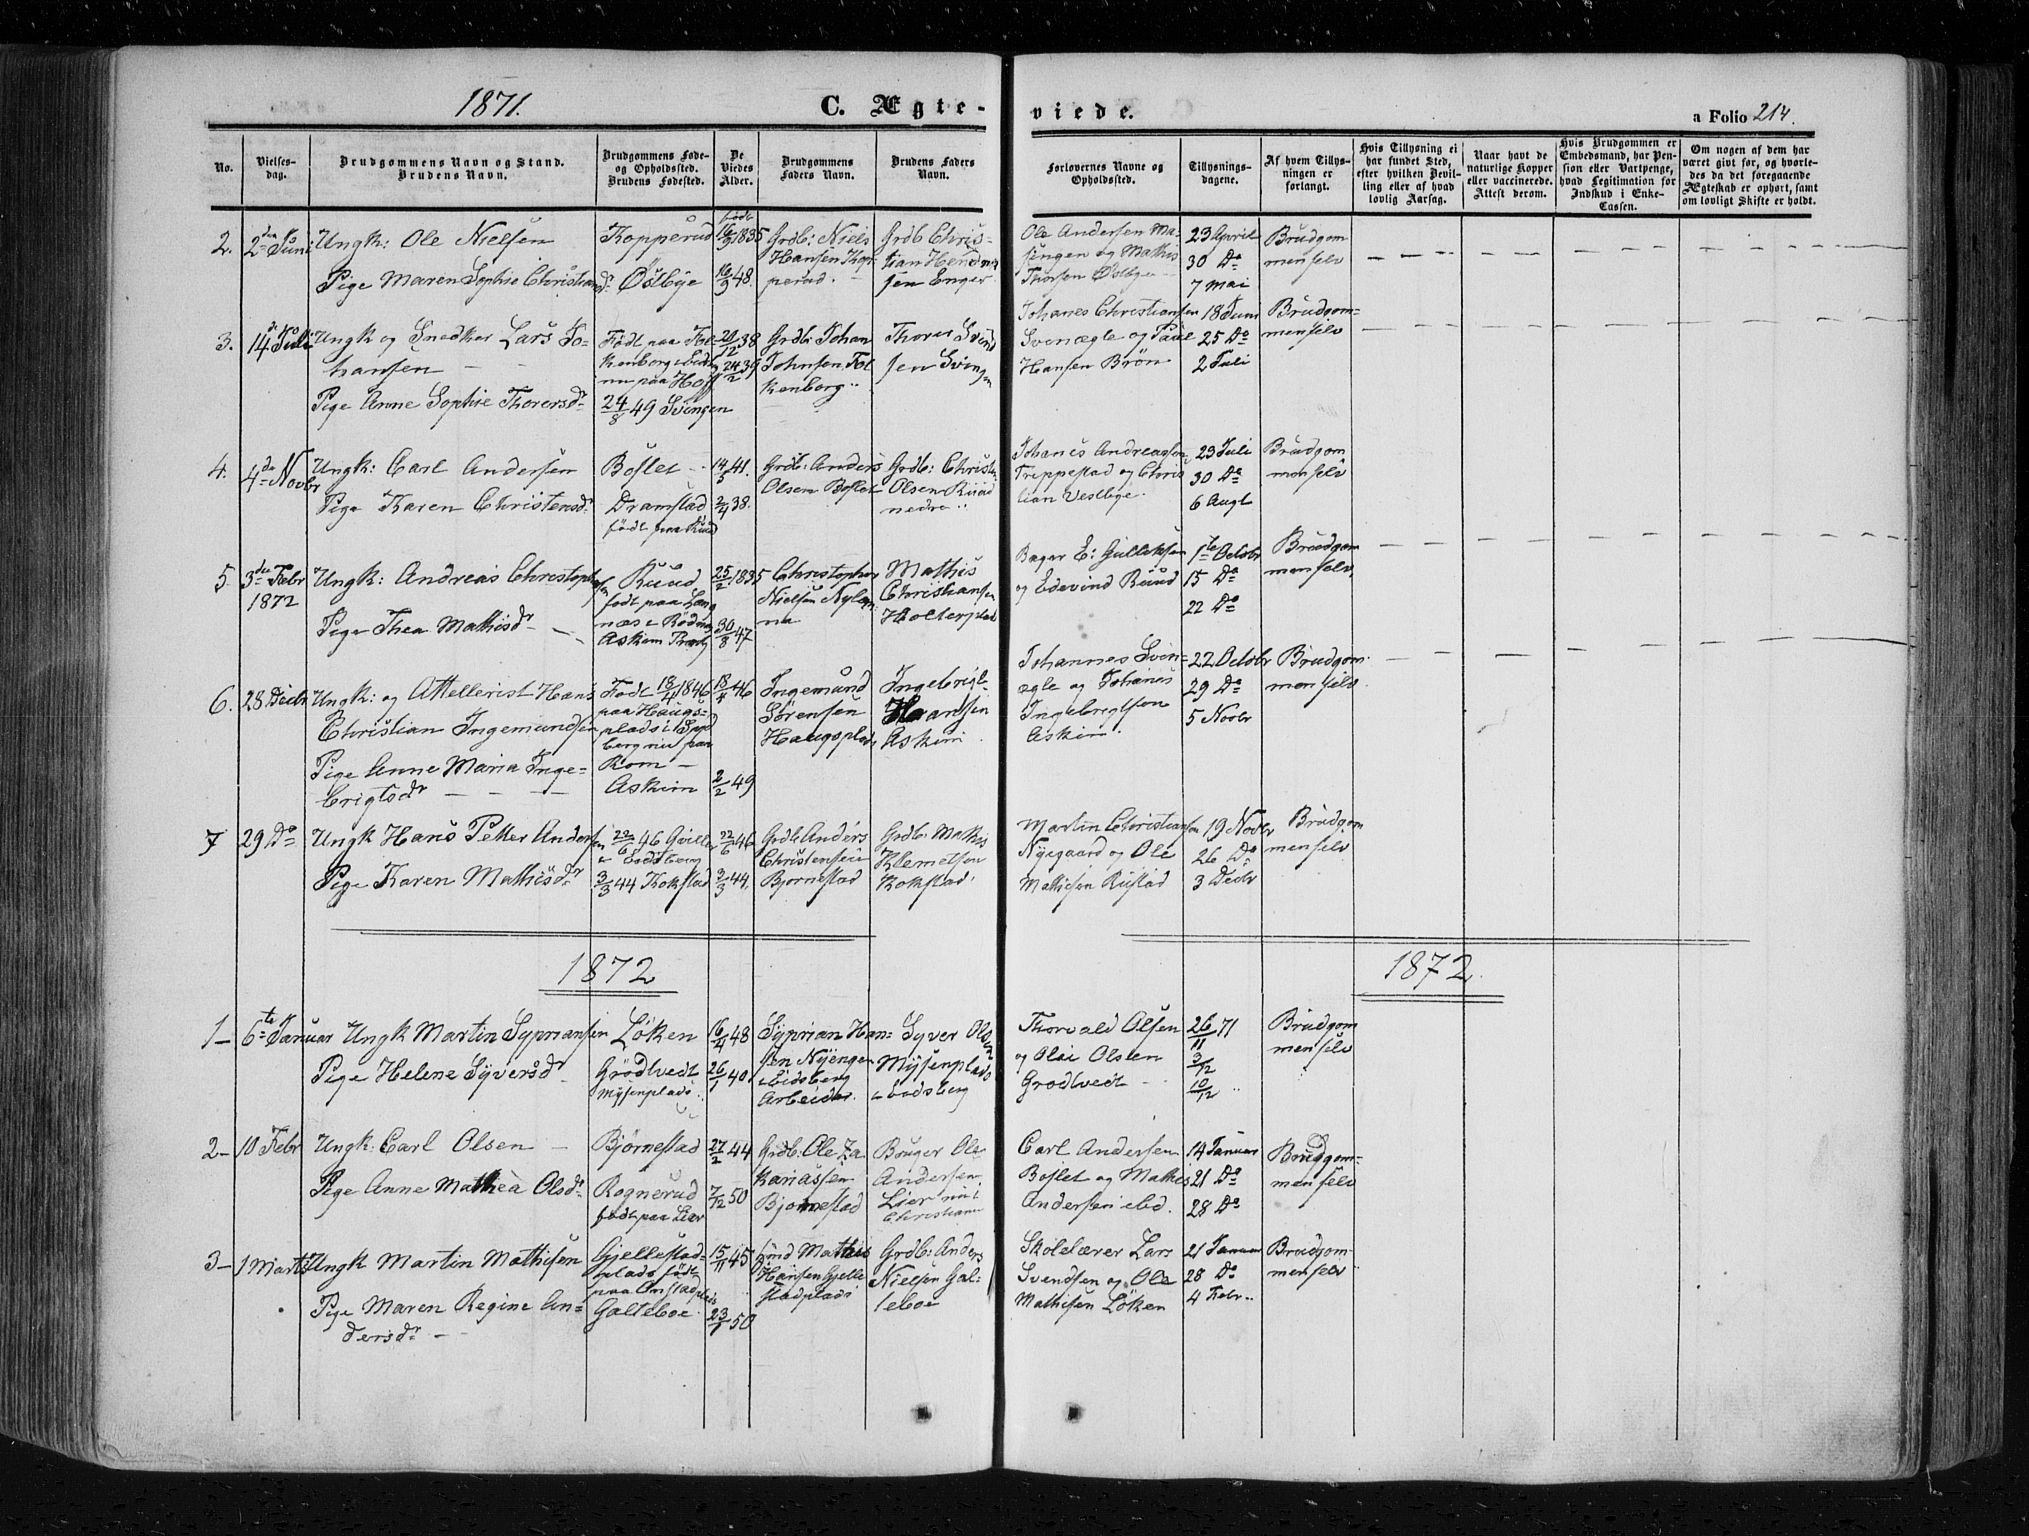 1871.
C. Ægte-
viede.
a Folio 214.
No.
Vielses-
dag.
Brudgommens Navn og Stand.
Brudens Navn.
Brudgommens Føde-
og Opholdssted.
Brudens Fødested.
De
Viedes
Alder.
Brudgommens
Faders Navn.
Brudens Faders
Navn.
Forlovernes Navne og
Opholdssted.
Tillysnings-
dagene.
Af hvem Tillys-
ningen er
forlangt.
Hvis Tillysning ei
har fundet Sted,
efter hvilken Bevil-
ling eller af hvad
lovlig Aarsag.
Naar havt de
naturlige Kopper
eller vaccinerede.
Attest derom.
Hvis Brudgommen er
Embedsmand, har Pen-
sion eller Vartpenge,
hvad Legitimation for
Indskud i Enke-
Cassen.
Om nogen af dem har
været gift før, og hvorle-
des da det foregaaende
Ægteskab er ophørt, samt
om lovligt Skifte er holdt.
2.
2den Juni
Ungk: Ole Nielsen
Pige Maren Sophie Christiansd.
Kopperud
Østbye
født
16/9 1835
16/9 48.
Grdb: Niels
Hansen Kop-
perud.
Grdb Chris-
tian Hendrik
sen Enger
Ole Andersen Ma-
sengen og Mathis
Thorsen Østbye
23 April
30 Do
7 Mai
Brudgom
men selv
3.
14de Juli
Ungk og Snedker Lars Jo-
hansen
Pige Anne Sophie Thorersdr
Født paa Fol
kenborg i Eidsb
nu paa Hoff
24/8 49 Svingen
20/12 38
24/2 39
Grdb: Johan
Johnsen Fol
kenborg
Thorer Svend
sen Svingen
Johanes Christiansen
Svenægle og Paul
Hansen Brøn
18 Juni
25 Do
2 Juli
Brudgom-
men selv
4.
4de Novbr
Ungk: Carl Andersen
Pige Karen Christensdr
Boslet
Dramstad
født paa Ruud
14/5 41.
2/4 38.
Grdb: Anders
Olsen Boslet
Grdb: Christen
Olsen Ruud
nedre
Johanes Andreassen
Treppestad og Chris
tian Vestbye.
23 Juli
30 Do
6 Augt
Brudgom
men selv
5.
3de Febr
1872
Ungk: Andreas Christophersen
Pige Thea Mathisdr
Ruud
født paa Lang
næs i Rødnæs
Askim Præstg
25/2 1835
30/8 47
Christopher
Nielsen Nylæn
na
Mathis
Christiansen
Holterplads
Bager E: Gulliksen
og Edevind Ruud
1te Octobr
15 Do
22 Do
Brudgom
men selv,
6.
28 Decbr
Ungk: og Attellerist Hans
Christian Ingemundsen
Pige Anne Maria Inge-
brigtsdr
Født 18/4 1846
paa Haugs-
plads i Spyd
berg nu paa
Rom
Askim
18/4 46
2/2 49
Ingemund
Sørensen
Haugsplads
Ingebrigt
Haansen
Askim
Johannes Sven-
ægle og Johanes
Ingebrigtsen
Askim.
22 Octobr
29 Do
5 Novbr
Brudgom
men selv
7
29 Do
Ungk Hans Petter Andersen
Pige Karen Mathisdr
22/6 46 Gviller
i Eidsberg
3/3 44 Kokstad
22/6 46
3/3 44.
Grdb Anders
Christensen
Bjørnestad
Grdb: Mathis
Klemetsen
Kokstad
Martin Christiansen
Nygaard og Ole
Mathisen Rustad
19 Novbr
26 Do
3 Decbr
Brudgom
men selv
1872
1872.
1
6te Januar
Ungk Martin Syprianssen
Pige Helene Syversdr
Løken
Grødtvedt
Mysenplads
16/4 48
26/1 40
Syprian Han-
sen Nyengen
i Eidsberg
Arbeider.
Syver Olsen
Mysenplads
i Eidsberg
Thorvald Olsen
og Olai Olsen
Grødtvedt
26/11 71
3/12
10/12
Brudgom
men selv
2
10 Febr
Ungk: Carl Olsen
Pige Anne Mathea Olsdr
Bjørnestad
Rognerud
født paa Lier
27/2 44
7/12 50
Grdb: Ole Za
kariassen
Bjørnestad
Bruger Ole
Andersen
Lier nu i
Christiania
Carl Andersen
Boslet og Mathis
Andersen ibd.
14 Januar
21 Do
28 Do
Brudgom-
men selv
3
1 Marts
Ungk Martin Mathisen
Pige Maren Regine An-
dersdr
Gjellestad-
plads født
paa Onstadplads
Galteboe
15/11 45
23/1 50
Mathis
Hansen Gjelle
stadplads
Grdb: Anders
Nielsen Gal-
teboe
Skolelærer Lars
Svendsen og Ole
Mathisen Løken
21 Januar
28 Do
4 Febr
Brudgom-
men selv